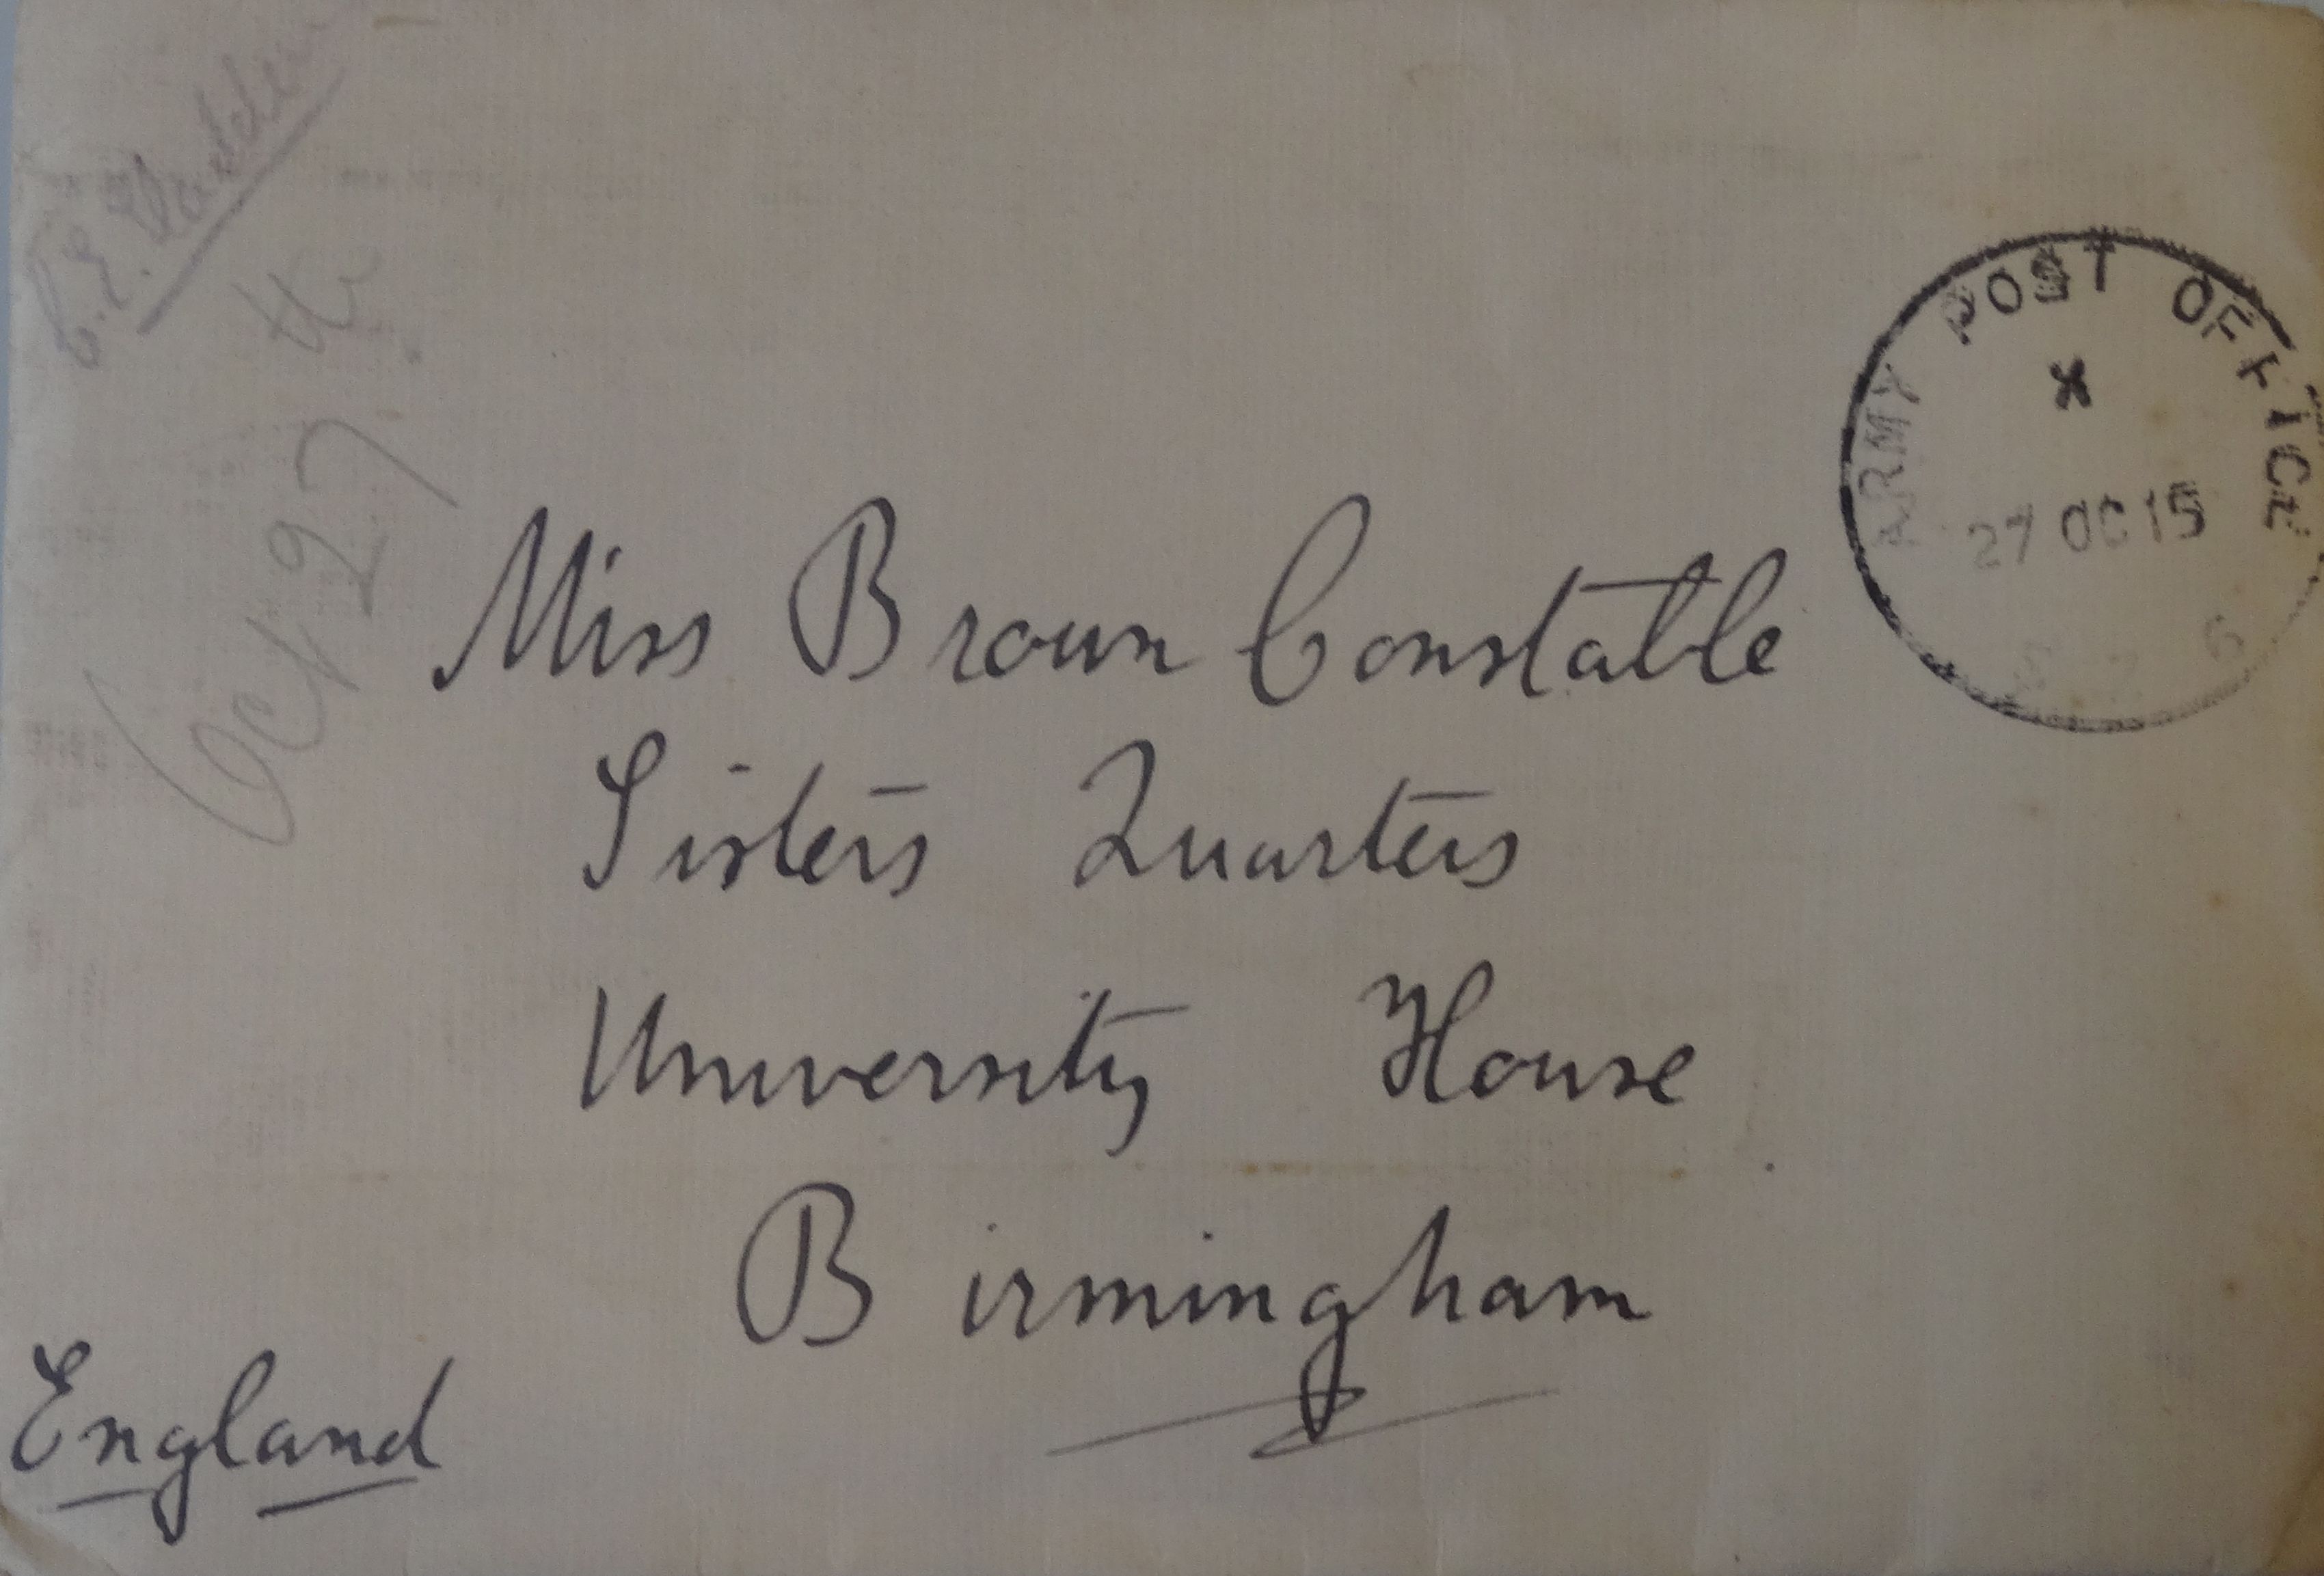 Oct 27th.
Miss Brown Constable
Sisters Quarters
University House
Birmingham
England
ARMY POST OFFICE
X
27 OC 15